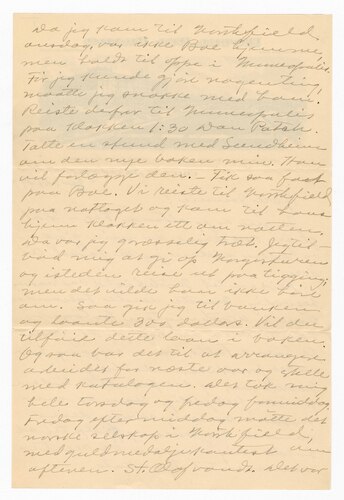 Da jeg kom til Northfield
onsdag, var ikke Boe hjemme,
men holdt til oppe i Minneapolis.
Før jeg kunde gjøre nogenting,
maatte jeg snakke med ham.
Reiste derfor til Minneapolis
paa klokken 1:30 Dan Patch.
Talte en stund med Sundheim
om den nye boken min. Han
vil forlægge den. – Fik saa fat
paa Boe. Vi reiste til Northfield
paa nattoget og kom til hans
hjem klokken ett om natten.
Da var jeg græsselig træt. Jeg til-
bød mig at gi op Norgesturen
og isteden reise ut paa tigging;
men det vilde han ikke høre
om. Saa gik jeg til banken
og laante 300 dollars. Vil du
tilføie dette laan i boken.
Og saa var det til at arrangere
arbeidet for næste aar og stelle
med katalogen. Det tok mig
hele torsdag og fredag formiddag.
Fredag eftermiddag møtte det
norske selskap i Northfield,
med guldmedaljekontest om
aftenen. St. Olaf vandt. Det var